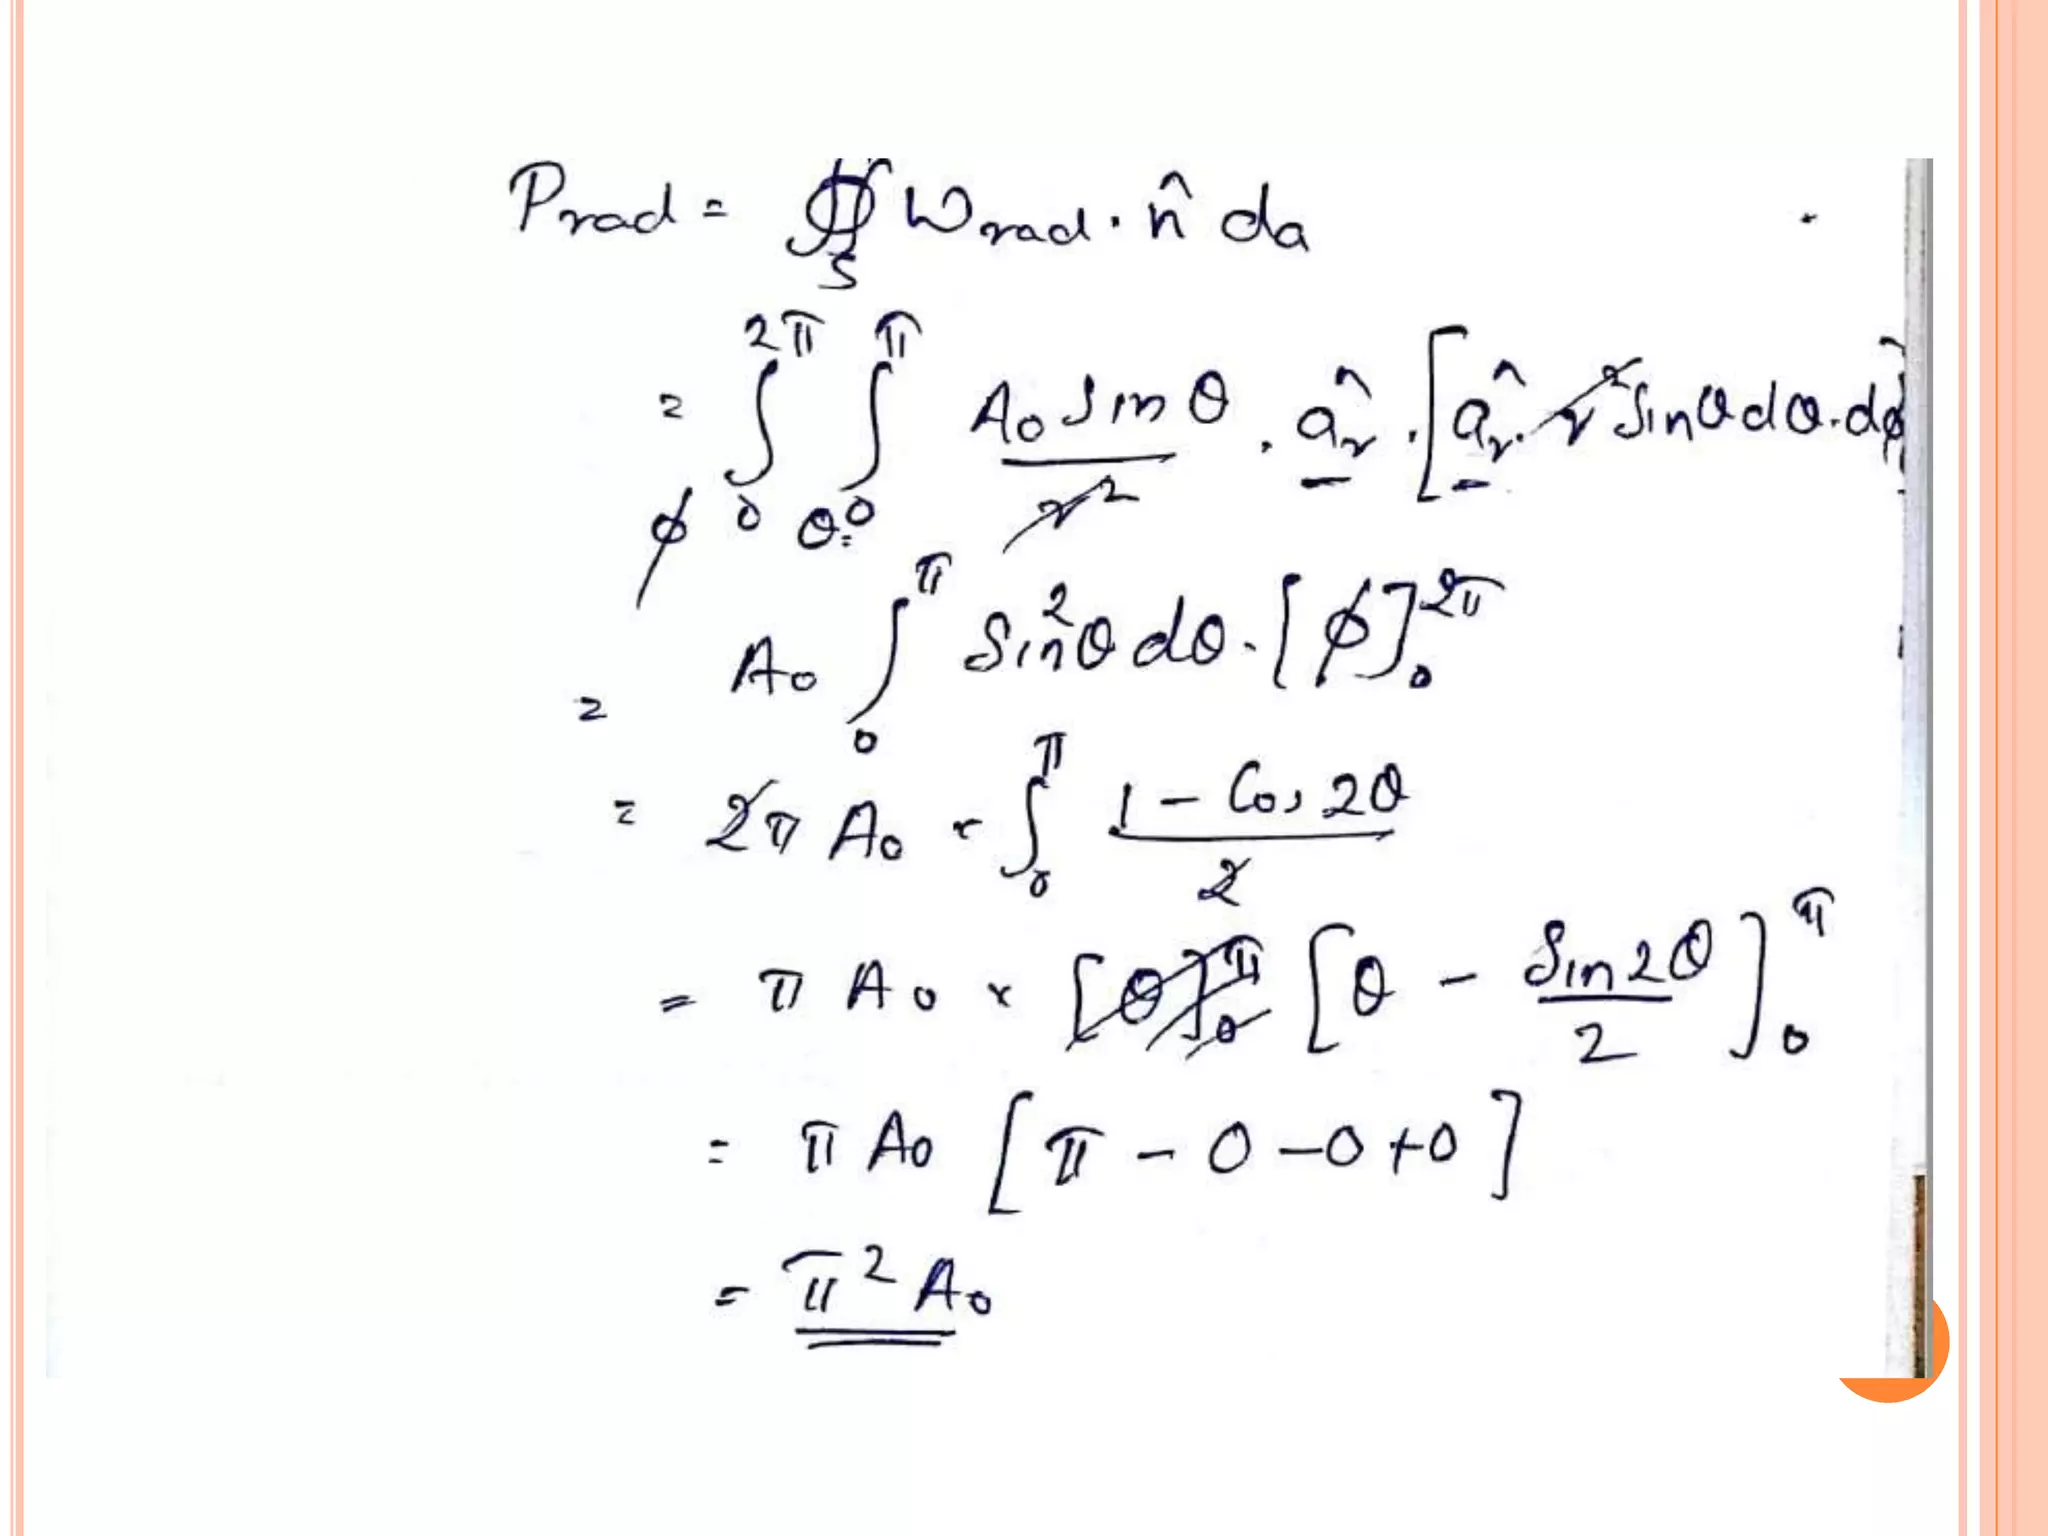 Prad = ∯_S Wrad · n̂ da
= ∫_{φ 0}^{2π} ∫_{θ=0}^{π} A₀ Sinθ / r² · â_r · [â_r · r² Sinθ dθ · dφ
= A₀ ∫_0^π Sin²θ dθ · [φ]_0^{2π}
= 2π A₀ × ∫_0^π (1 - Cos 2θ) / 2
= π A₀ × [θ]_0^π [θ - Sin2θ / 2]_0^π
= π A₀ [π - 0 - 0 + 0]
= π² A₀